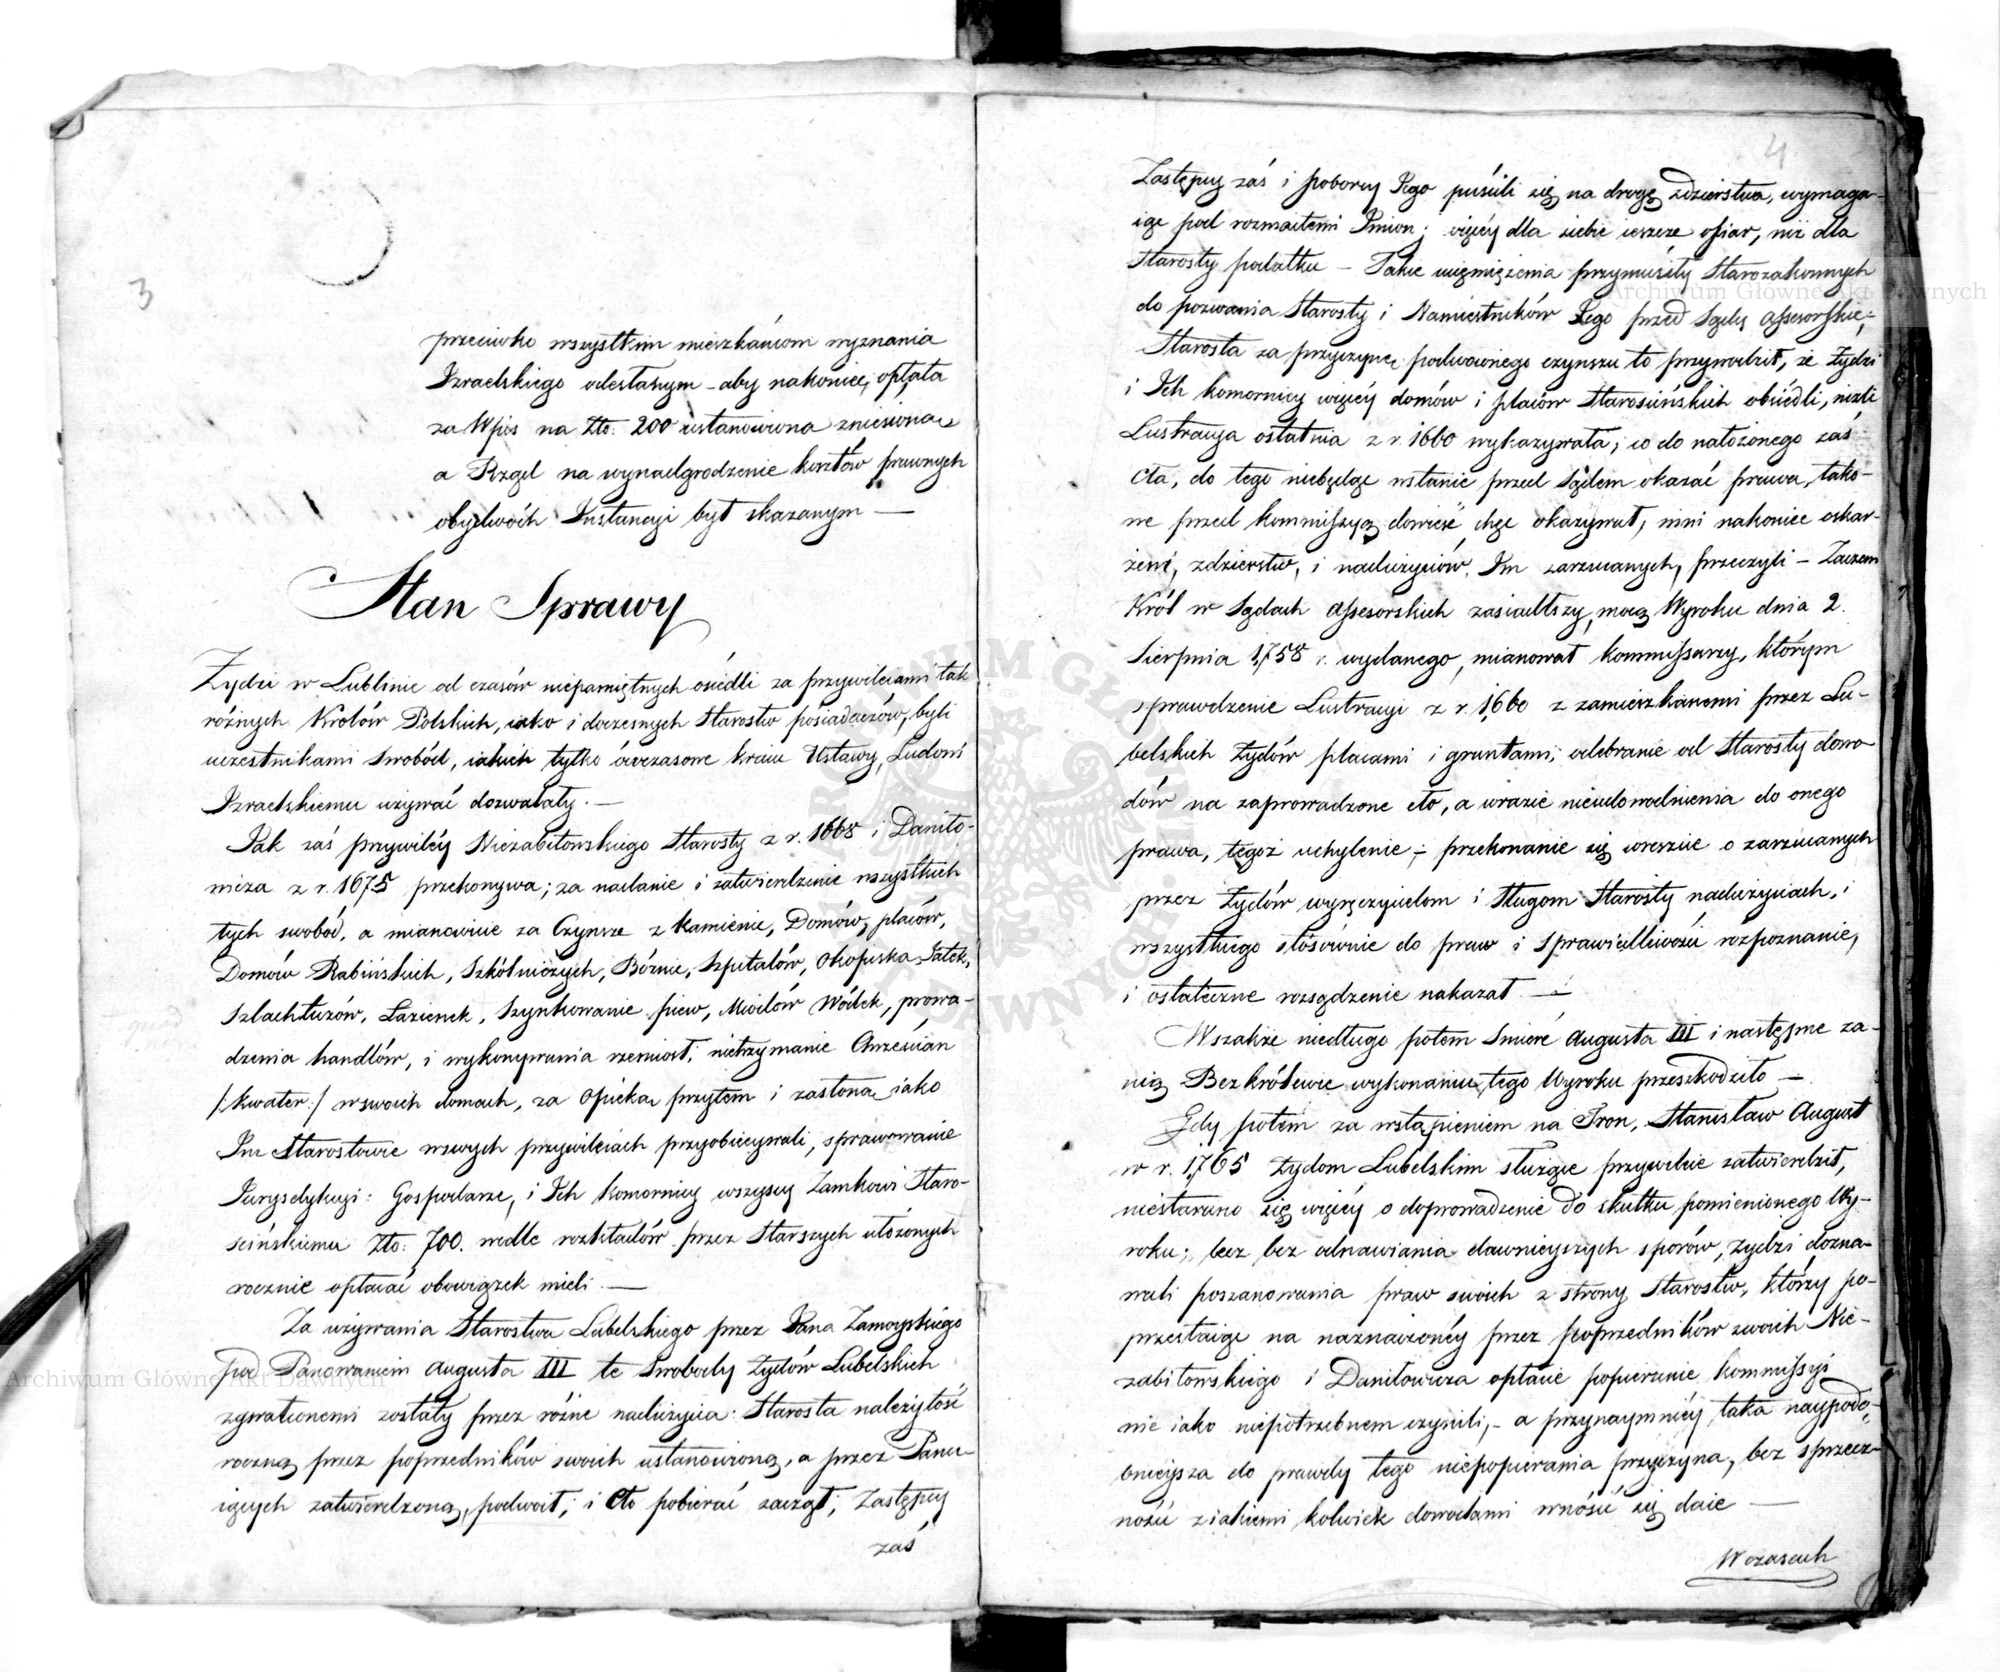 3
przeciwko wszystkim mieszkańcom wyznania
Izraelskiego odesłanym – aby nakoniec, opłata
za Wpis na Zło: 200 ustanowiona zniesiona
a Rząd na wynadgrodzenie kosztów prawnych
obydwóch Instancyi był skazanym —
Stan Sprawy
Żydzi w Lublinie od czasów niepamiętnych osiedli za przywileiami tak
różnych Królów Polskich, iako i doczesnych Starostw posiadaczów, byli
uczestnikami swobód, iakich tylko ówczasowe kraiu Ustawy, Ludowi
Izraelskiemu używać dozwalały. —
Jak zaś przywiléy Niezabitowskiego Starosty z r. 1668 i Daniło-
wicza z r. 1675 przekonywa; za nadanie i zatwierdzenie wszystkich
tych swobód, a mianowicie za Czynsze z kamienic, Domów, placów,
Domów Rabińskich, Szkólniczych, Bóżnic, Szpitalów, Okopiska, Jatek,
Szlachtuzów, Łazienek, Szynkowanie piew, Miodów Wódek, prowa-
dzenia handlów, i wykonywania rzemiost, nietrzymanie Chrześcian
/: kwater :/ w swoich domach, za Opieka przytem i zasłona iako
Im Starostowie w swych przywileiach przyobiecywali, sprawowanie
Jurysdykcyi: Gospodarze, i Ich komornicy wszyscy Zamkowi Staro-
ścińskiemu Zło: 700. wedle rozkładów przez Starszych ułożonych
rocznie opłacać obowiązek mieli. —
Za używania Starostwa Lubelskiego przez Pana Zamoyskiego
pod Panowaniem Augusta III te Swobody Żydów Lubelskich
zgwałconemi zostały przez różne nadużycia: Starosta należytość
roczną przez poprzedników swoich ustanowioną, a przez Panu-
iących zatwierdzoną, podwoił, i Cło pobierać zaczął, Zastępcy
zaś
4
Zastępcy zaś i poborcy Jego puścili się na drogę zdzierstwa, wymaga-
iąc pod rozmaitemi Imiony więcéy dla siebie ieszcze ofiar, niż dla
Starosty podatku – Takie uciemiężenia przymusiły Starozakonnych
do pozwania Starosty i Namiestników Jego przed Sądy Assesorskie,
Starosta za przyczynę podwoionego czynszu to przywodził, że Żydzi
i Ich komornicy więcéy domów i placów Starościńskich obsiedli, niżli
Lustracya ostatnia z r. 1660 wykazywała; co do nałożonego zaś
Cła, do tego niebędąc wstanie przed Sądem okazać prawa, tako-
we przed kommissyą dowieść chęć okazywał, inni nakoniec oskar-
żeni, zdzierstw, i nadużyciów, Im zarzucanych, przeczyli – Zaczem
Król w Sądach Assesorskich zasiadłszy, mocą Wyroku dnia 2.
Sierpnia 1758 r. wydanego, mianował kommissarzy, którym
sprawdzenie Lustracyi z r. 1660 z zamieszkanemi przez Lu-
belskich Żydów placami i gruntami; odebranie od Starosty dowo-
dów na zaprowadzone cło, a wrazie nieudowodnienia do onego
prawa, tegoż uchylenie; – przekonanie się wreszcie o zarzucanych
przez Żydów wyręczycielom i Sługom Starosty nadużyciach, i
wszystkiego stósownie do praw i Sprawiedliwości rozpoznanie,
i ostateczne rozsądzenie nakazał. —
Wszakże niedługo potem Śmierć Augusta III i następne za-
nią Bezkrólewie wykonaniu tego Wyroku przeszkodziło —
Gdy potem za wstąpieniem na Tron, Stanisław August
w r. 1765 Żydom Lubelskim służące przywileie zatwierdził,
niestarano się więcéy o doprowadzenie do skutku pomienionego Wy-
roku; lecz bez odnawiania dawnieyszych sporów, Żydzi dozna-
wali poszanowania praw swoich z strony Starostw, którzy po-
przestaiąc na naznaczonéy przez poprzedników swoich Nie-
zabitowskiego i Daniłowicza opłacie popieranie kommissyi
nie iako niepotrzebnem czynili, – a przynaymniéy taka naypodo-
bnieysza do prawdy tego niepopierania przyczyna, bez sprzecz-
ności z iakiemi kolwiek dowodami wnosić się daie —
W czasach